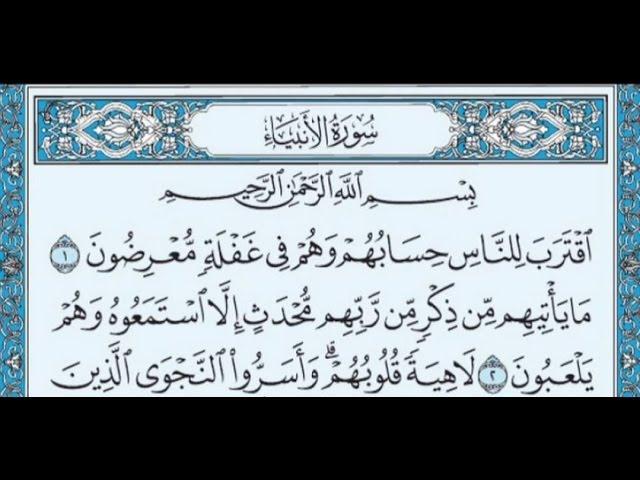 سُورَةُ الأَنبِيَاءِ
بِسْمِ ٱللَّهِ ٱلرَّحْمَٰنِ ٱلرَّحِيمِ
ٱقْتَرَبَ لِلنَّاسِ حِسَابُهُمْ وَهُمْ فِي غَفْلَةٍ مُّعْرِضُونَ ١
مَا يَأْتِيهِم مِّن ذِكْرٍ مِّن رَّبِّهِم مُّحْدَثٍ إِلَّا ٱسْتَمَعُوهُ وَهُمْ
يَلْعَبُونَ ٢ لَاهِيَةً قُلُوبُهُمْ ۗ وَأَسَرُّوا۟ ٱلنَّجْوَى ٱلَّذِينَ